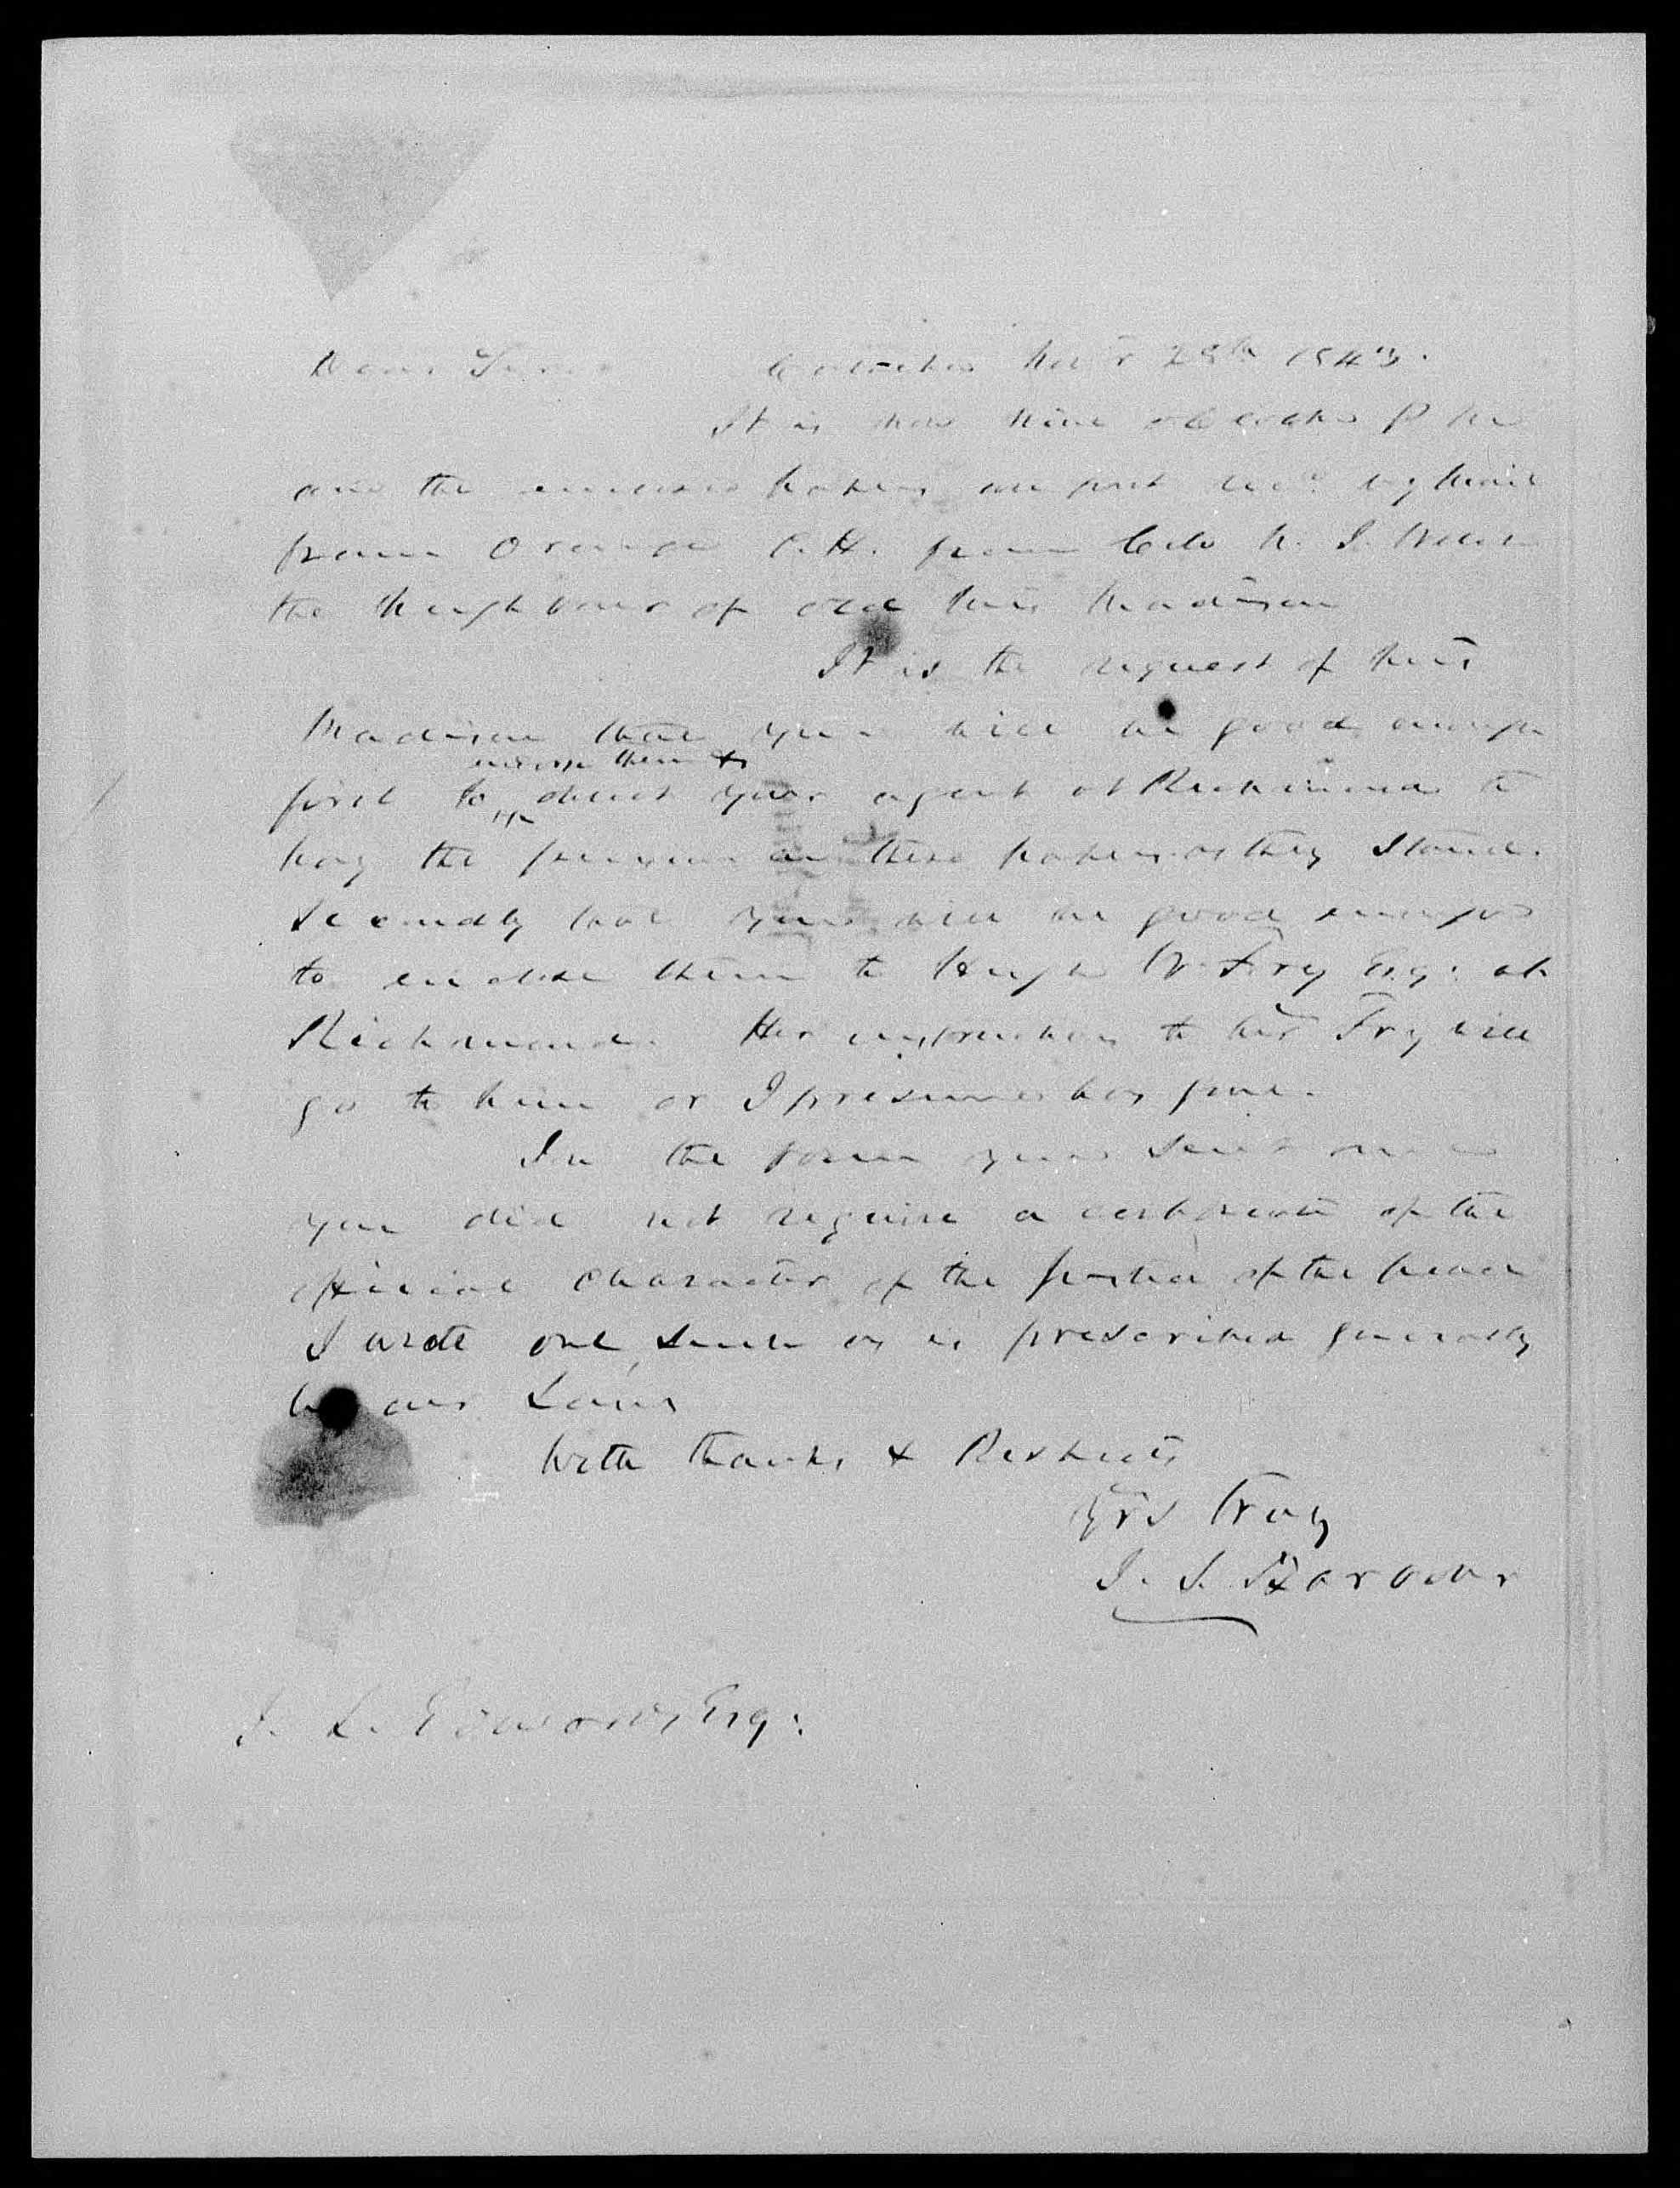 Dear Sir
Catalpa Nov'r 28th 1843.
It is now nine o'clock P M
and the enclosed papers are just rec'd by mail
from Orange C. H. from Colo
the neighbour of old Mrs Madison
It is the request of Mrs
Madison that you will be good enough
first to direct your agent at Richmond to
enclose them &
pay the pension on these papers as they stand.
Secondly that you will be good enough
to enclose them to Hugh W. Fry Esq: at
Richmond. Her instructions to Mr Fry will
go to him or I presume has gone.
In the form you sent me
you did not require a certificate of the
official character of the justice of the peace
I wrote one, such as is prescribed generally
by our Laws
With thanks & Respects
Yrs Truly
J. S. Barbour
J. L. Edwards, Esq: